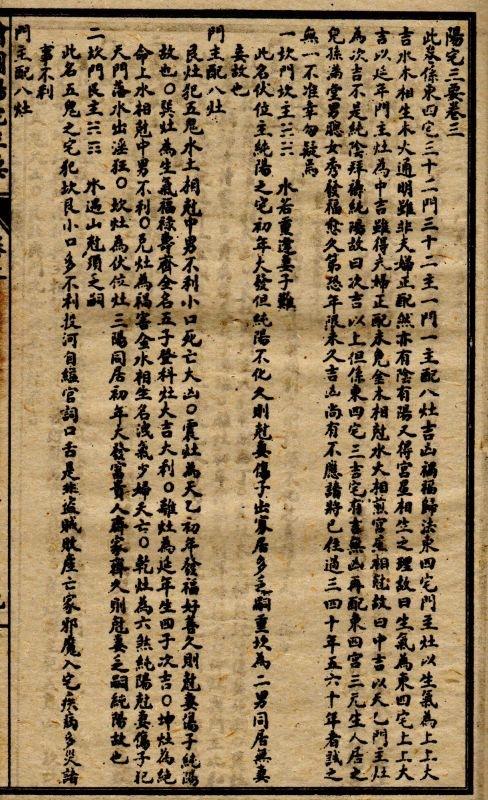 陽宅三要卷三
此卷係東四宅三十二門三十二主一門一主配八灶吉凶禍福歸法東四宅門主灶以生氣為上上大
吉水木相生木火通明雖非夫婦正配然亦有陰有陽又得宮星相生之理故曰生氣為東四宅上上大
吉以延年門主灶為中吉雖得夫婦正配未免金木相尅水火相煎宮星相尅故曰中吉以天乙門主灶
為次吉不是純陰殊純陽故曰次吉以上但係東四宅三吉宅有吉無凶再配東四宮三元生人居之
兒孫滿堂男聰女秀發福愈久第恐年限未久吉凶尚有不應請將已住過三四十年五六十年者試之
無一不准幸勿疑焉
一坎門坎主☵☵ 水若重逢妻子難
此名伏位主純陽之宅初年大發但純陽不化久則尅妻傷子出寡居多乏嗣重坎為二男同居無妻
妾故也
門主配八灶
艮灶犯五鬼水土相尅中男不利小口死亡大凶○震灶為天乙初年發福好善久則尅妻傷子純陽
故也○巽灶為生氣福祿壽齊全名五子登科灶大吉大利○離灶為延年生四子次吉○坤灶為絕
命土水相尅中男不利○兌灶為禍害金水相生名洩氣少婦夭亡○乾灶為六煞純陽尅妻傷子犯
天門落水出淫狂○坎灶為伏位灶三陽同居初年大發富貴人齊家齊久則尅妻乏嗣純陽故也
二坎門艮主☵☶ 水遇山尅須乏嗣
此名五鬼之宅犯坎艮小口多不利投河自縊官詞口舌是非盜賊敗產亡家邪魔入宅疾病多災諸
事不利
門主配八灶